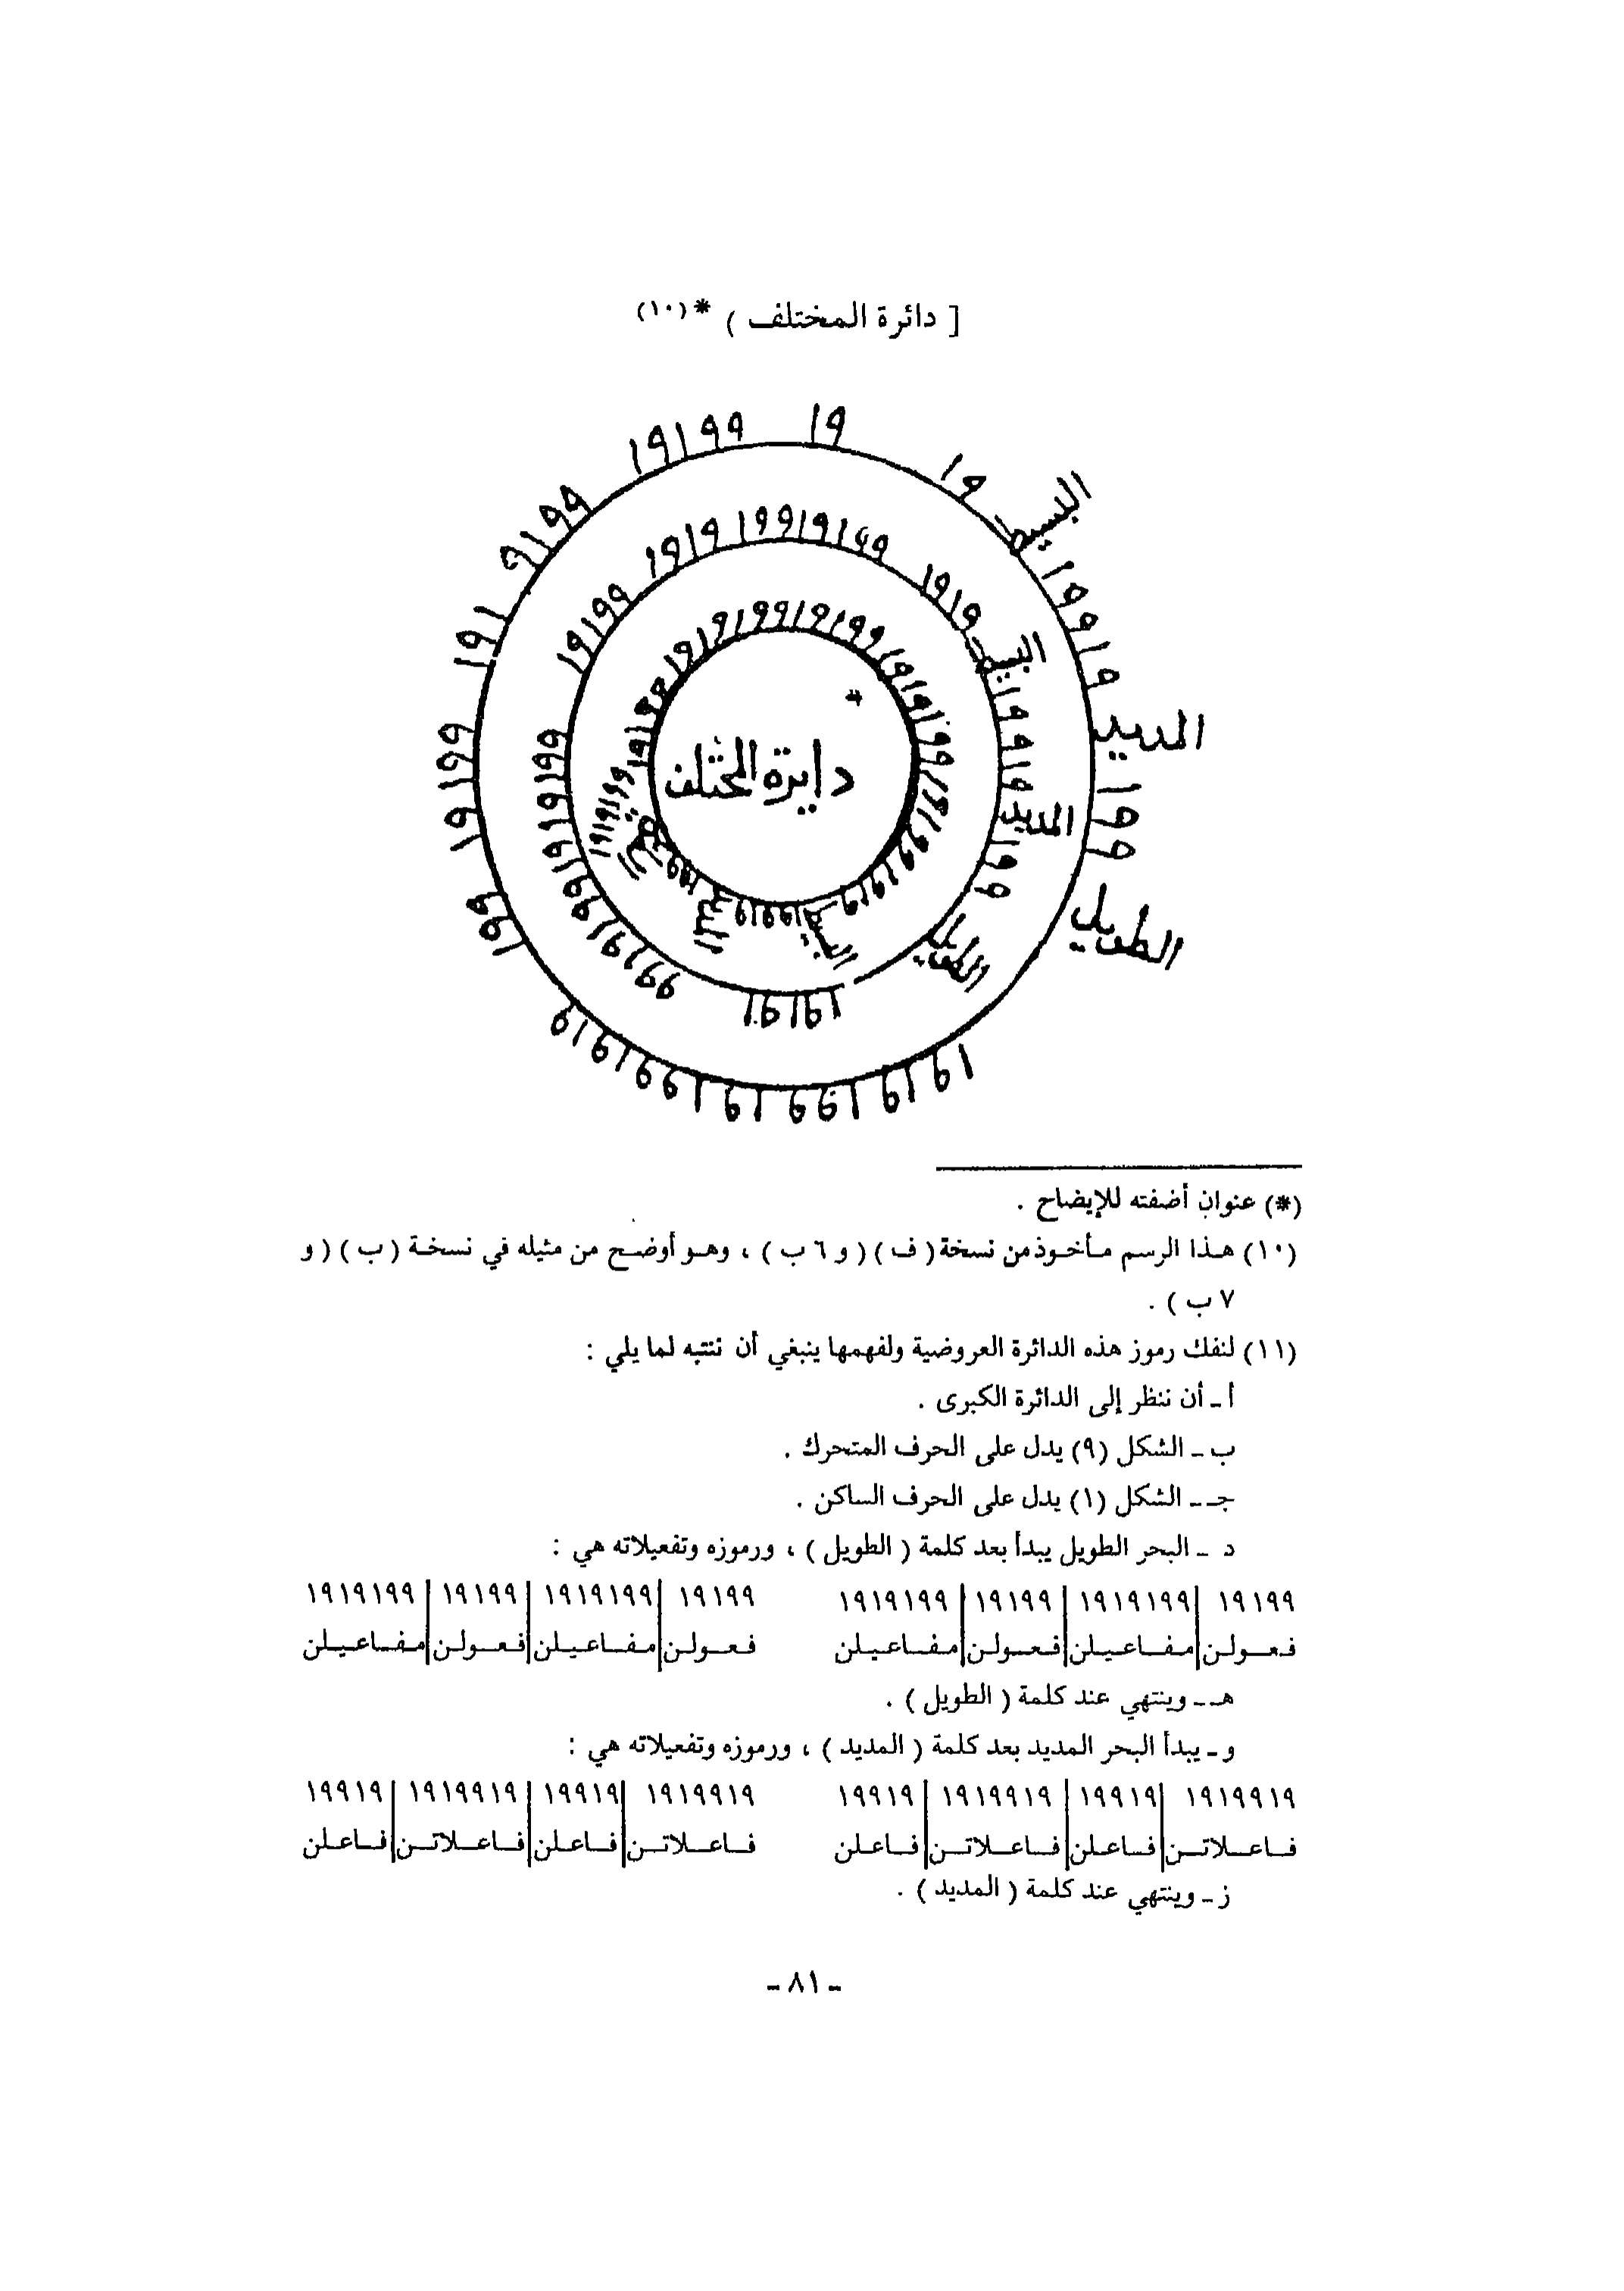 [ دائرة المختلف ) *(١٠)
البسيط
المديد
الطويل
البسيط
المديد
الطويل
دايرة المختلف
(*) عنوان أضفته للإيضاح .
(١٠) هـذا الرسم مـأخـوذ من نسخة ( ف ) ( و ٦ ب ) ، وهـو أوضـح من مثيله في نسخـة ( ب ) ( و
٧ ب ) .
(١١) لنفك رموز هذه الدائرة العروضية ولفهمها ينبغي أن ننتبه لما يلي :
أ ـ أن ننظر إلى الدائرة الكبرى .
ب ـ الشكل (٩) يدل على الحرف المتحرك .
جـ ـ الشكل (١) يدل على الحرف الساكن .
د ـ البحر الطويل يبدأ بعد كلمة ( الطويل ) ، ورموزه وتفعيلاته هي :
١٩١٩٩ | ١٩١٩١٩٩ | ١٩١٩٩ | ١٩١٩١٩٩ ١٩١٩٩ | ١٩١٩١٩٩ | ١٩١٩٩ | ١٩١٩١٩٩
فـعـولـن | مـفـاعـيـلن | فـعـولـن | مـفـاعـيـلن فـعـولـن | مـفـاعـيـلن | فـعـولـن | مـفـاعـيـلن
هـ ـ وينتهي عند كلمة ( الطويل ) .
و ـ يبدأ البحر المديد بعد كلمة ( المديد ) ، ورموزه وتفعيلاته هي :
١٩١٩٩١٩ | ١٩٩١٩ | ١٩١٩٩١٩ | ١٩٩١٩ ١٩١٩٩١٩ | ١٩٩١٩ | ١٩١٩٩١٩ | ١٩٩١٩
فـاعـلاتـن | فـاعـلن | فـاعـلاتـن | فـاعـلن فـاعـلاتـن | فـاعـلن | فـاعـلاتـن | فـاعـلن
ز ـ وينتهي عند كلمة ( المديد ) .
ـ ٨١ ـ